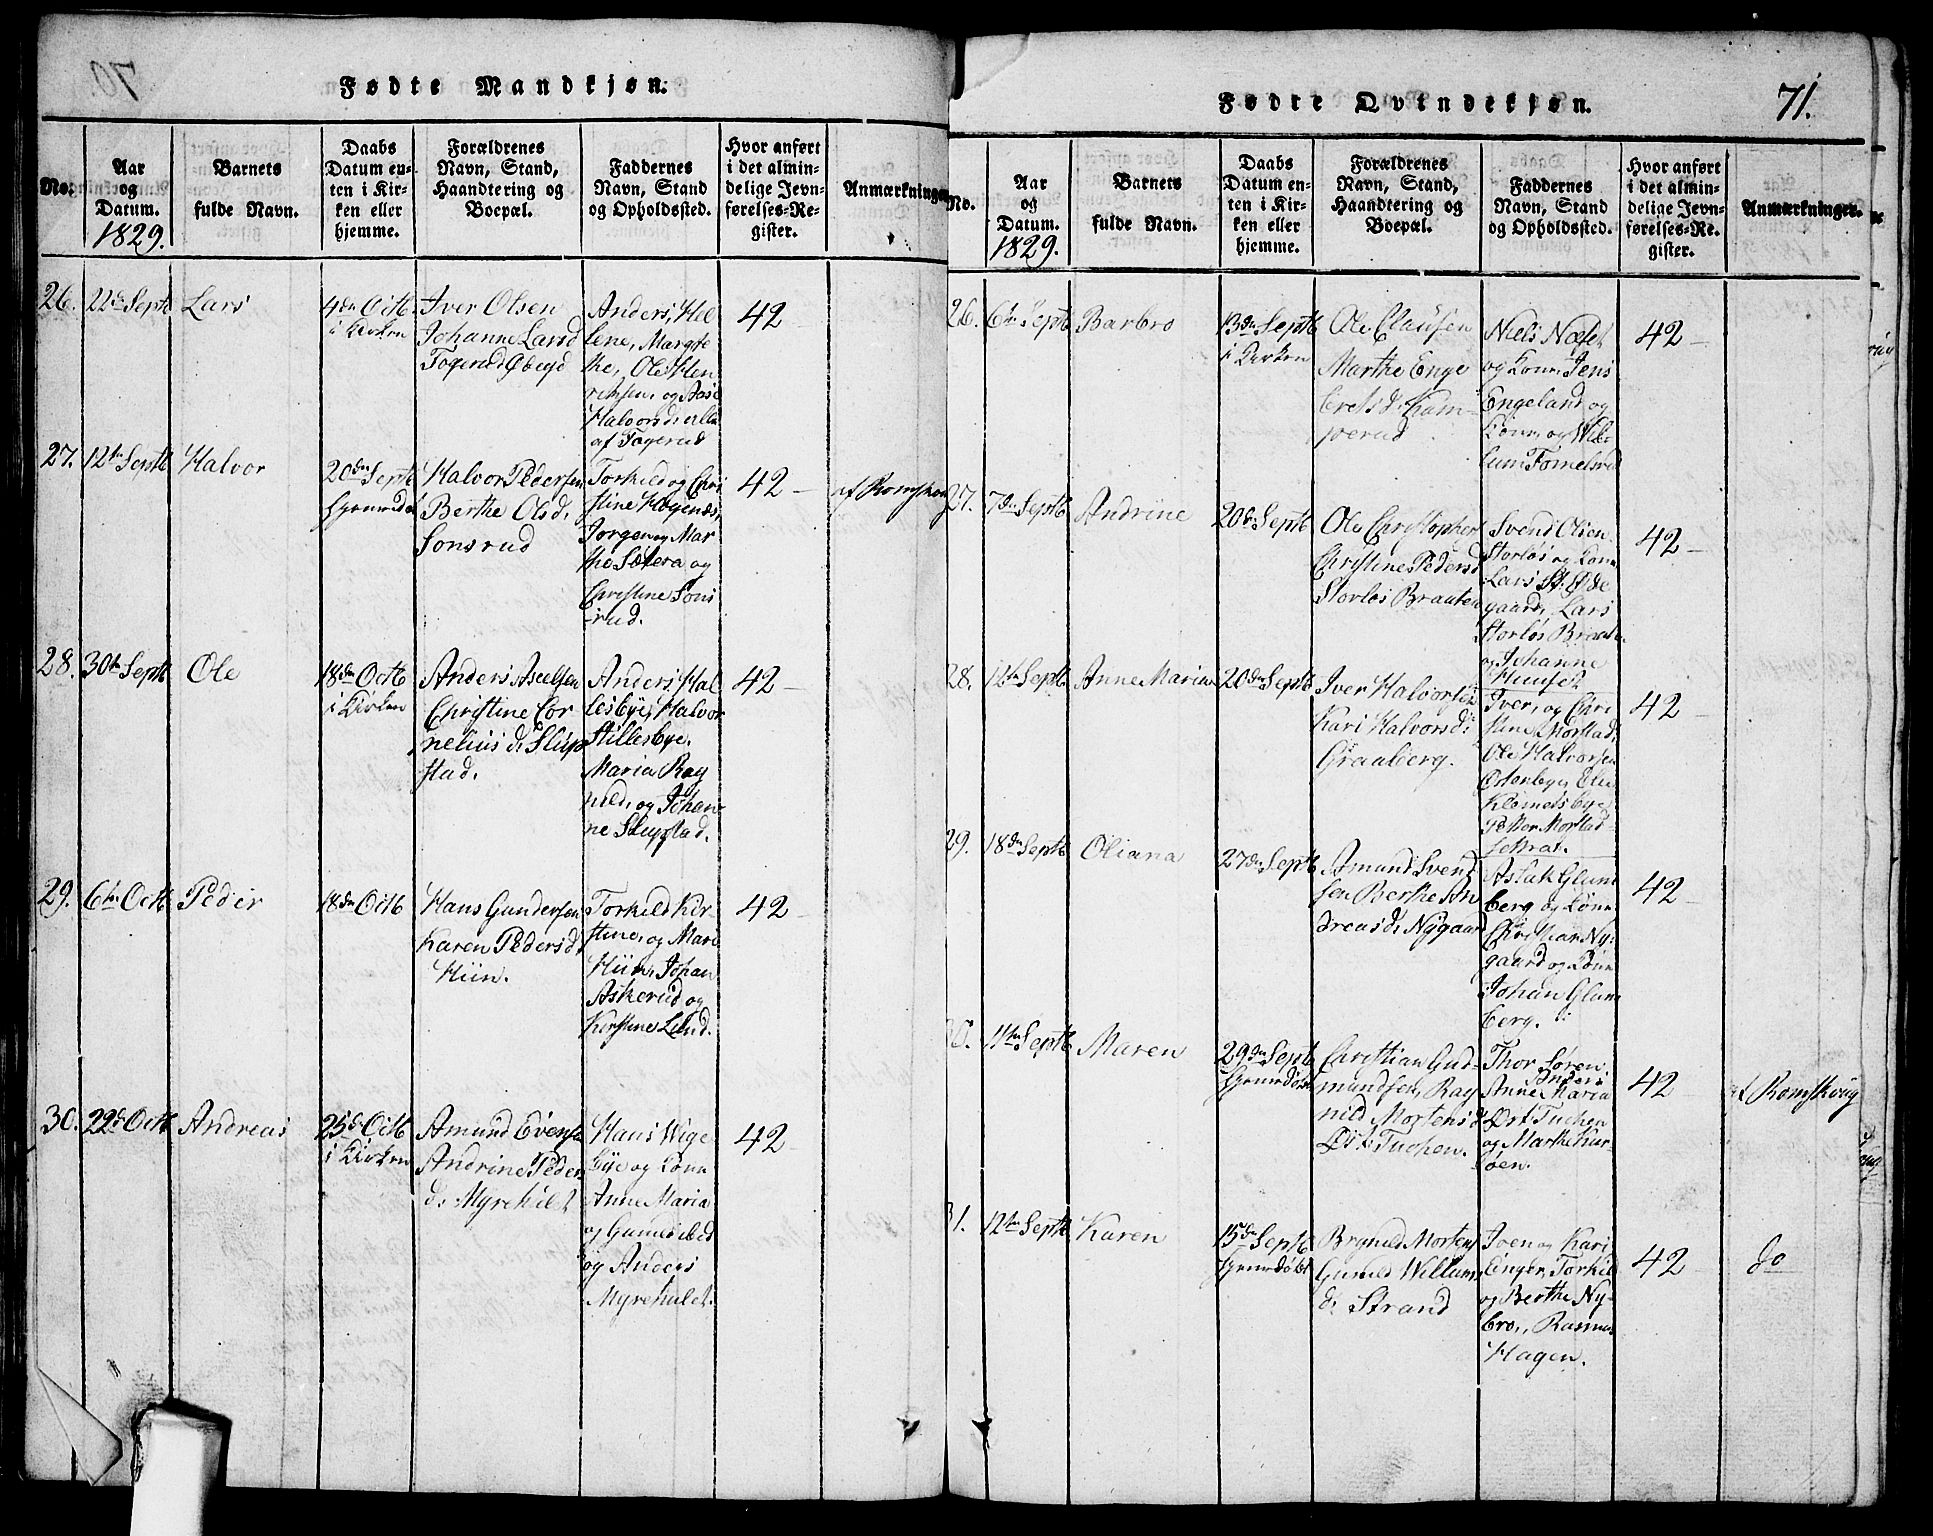 70.
Fødte Mandkjøn.
No.
Aar
og
Datum.
1829.
Barnets
fulde Navn.
Daabs
Datum en-
ten i Kir-
ken eller
hjemme.
Forældrenes
Navn, Stand,
Haandtering og
Boepæl.
Faddernes
Navn, Stand
og Opholdssted.
Hvor anført
i det almin-
delige Jevn-
førelses-Re-
gister.
Anmærkninger
26.
22de Septb
Lars
4de Octb.
i Kirken
Iver Olsen
Johanne Larsd
Togerud
Anders, Hel
lene, Margre
the, Ole Hen
riksen, og Aase
Halvorsd,
af Togerud
42
27.
12te Septb
Halvor
20de Septb
hjemmedøbt
Halvor Pedersen
Berthe Olsd,
Sonsrud
Torkild og Chri
stine
Jørgen og Mar
the Sætera og
Christine Sons
rud.
42
af Romskou
28.
30te Septb
Ole
18de Octb
i Kirken
Anders Axelsen
Christine Cor
neliusd. Slup
stad.
Anders Hal
lesbye, Halvor
Stillesbye,
Maria Rag
nild, og Johan
ne Slupstad.
42
29.
6te Octb
Peder
18de Octb
Hans Gundersen
Karen Pedersd,
Hiin.
Torkild Kir-
stine, og Mari
Hiin, Johan
Askerud og
Kirstine Lund.
42
30.
22de Octb
Andreas
25de Octb
i Kirken
Amund Evens.
Andrine Peders
d. Myrehulet
Hans Wige
bye og Kone
Anne Maria
og Gunild
og Anders
Myrehulet.
42
Fødte Qvindekjøn.
71.
No.
Aar
og
Datum.
1829.
Barnets
fulde Navn.
Daabs
Datum en-
ten i Kir-
ken eller
hjemme.
Forældrenes
Navn, Stand,
Haandtering og
Boepæl.
Faddernes
Navn, Stand
og Opholdssted.
Hvor anført
i det almin-
delige Jevn-
førelses-Re-
gister.
Anmærkninger.
26.
6te Septb
Barbro
13de Septb
i Kirken
Ole Clausen
Marthe Enge
bretsd. Kam-
perud
Niels Næset
og Kone, Jens
Engeland og
Kone, og Wil-
lum Tomelsrud
42
27.
7de Septb
Andrine
20de Septb
Ole Christopher
Christine Pedersd
Storløs Braaten
Svend Olsen
Storløs og Kone
Lars St. Øde
gaard, Lars
Storløs Braate.
og Johanne
Huuset
42
28.
12te Septb
Anne Maria
20de Septb
Iver Halvorsen
Kari Halvorsd.
Graalberg.
Iver, og Chri
stine Morstad,
Ole Halvorsen
Østenbye,
Klemetsbye
Petter Morstad
42
29.
18de Septb
Oliana
27de Septb
Amund Svend
sen Berthe An
dreasd, Nygaard
Aslak Glum
berg og Kone
Christian Ny-
gaard og Kone
Johan Glum
berg.
42
30.
11te Septb
Maren
29de Septb
hjemmedøbt
Christian Gud-
mundsen, Rag
nild Mortensd
Øst. Tuchen.
Thor Søren
Anders
Anne Maria
Øst Tuchen
og Marthe Kur-
øen.
42
af Romskoug
31.
12te Septb
Karen
15de Septb
hjemmedøbt
Brynild Mortens
Gunild Willums
d. Strand
Iven og Kari
Enger, Torkil
og Berthe Ny-
bro, Rasmus
Hagen.
42
do